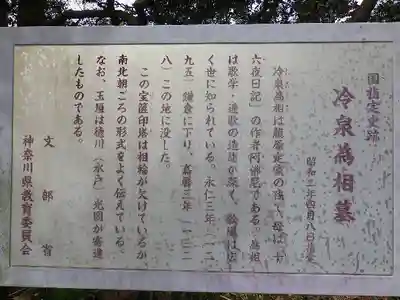 国指定史跡
冷泉為相墓
昭和二年四月八日指定
冷泉為相は藤原定家の孫、母は「十
六夜日記」の作者阿佛尼である。為相
は歌学・連歌の造詣が深く、
く世に知られている。永仁三年(一二
九五)鎌倉に下り、嘉暦三年(一三二
八)この地に没した。
この宝篋印塔は相輪が欠けているが、
南北朝ごろの形式をよく伝えている。
なお、玉垣は徳川(水戸)光圀が寄進
したものである。
文部省
神奈川県教育委員会